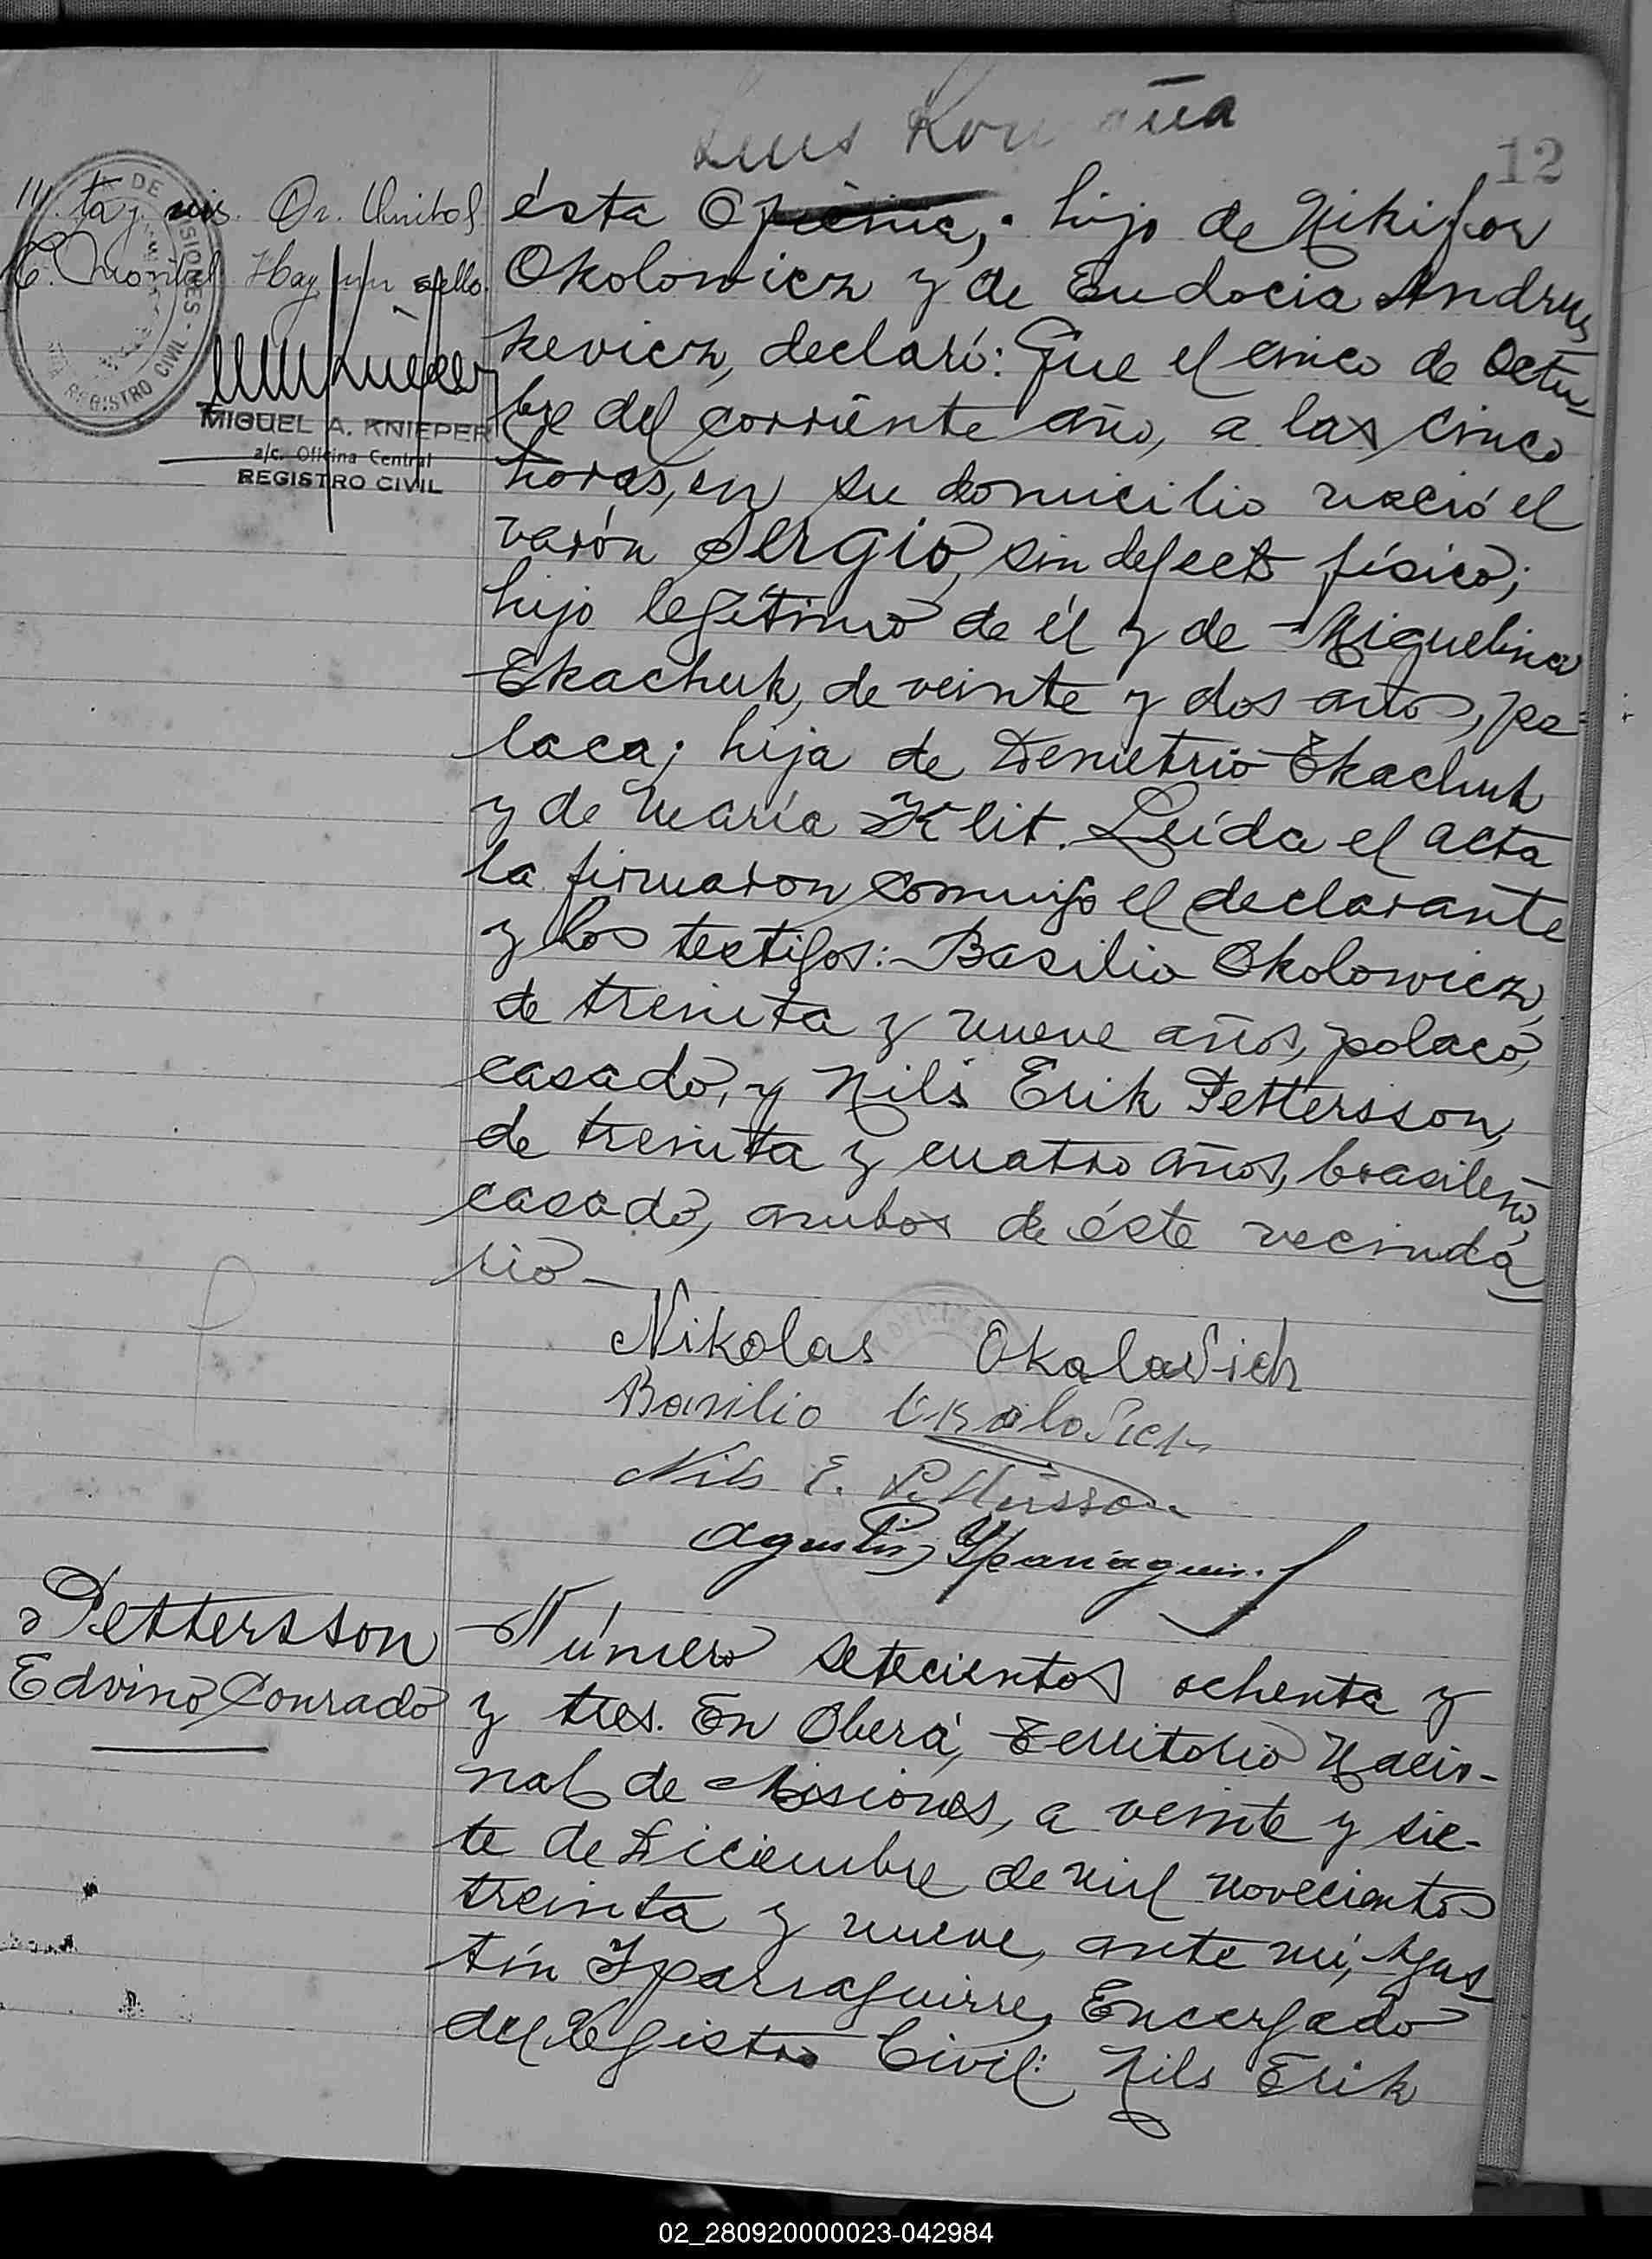 Luis
12
ta y seis. Or. Unibal
C. Montiel Hay un sello.
DE MISIONES
REGISTRO CIVIL
MIGUEL A. KNIEPER
a/c. Oficina Central
REGISTRO CIVIL
ésta Oficina; hijo de Nikifor
Okolowicz y de Eudocia Andrus
kevicz, declaró: Que el cinco de Octu-
bre del corriente año, a las cinco
horas, en su domicilio nació el
varón Sergio, sin defecto físico;
hijo legítimo de él y de Miguelina
Ekachuk, de veinte y dos años, po-
laca; hija de Demetrio Ekachuk
y de María Klit. Leída el acta
la firmaron conmigo el declarante
y los testigos: Basilio Okolowicz,
de treinta y nueve años, polaco,
casado, y Nils Erik Pettersson,
de treinta y cuatro años, brasileño,
casado, ambos de éste vecinda
rio—
Nikolas Okalavich
Basilio Okalovich
Nils E. Pettersson
Agustín Yparraguirre
Pettersson
Edvino Conrado
Número setecientos ochenta y
y tres. En Oberá, Territorio Nacio-
nal de Misiones, a veinte y sie-
te de Diciembre de mil novecientos
treinta y nueve, ante mí, Agus
tín Yparraguirre, Encargado
del Registro Civil: Nils Erik
02_280920000023-042984